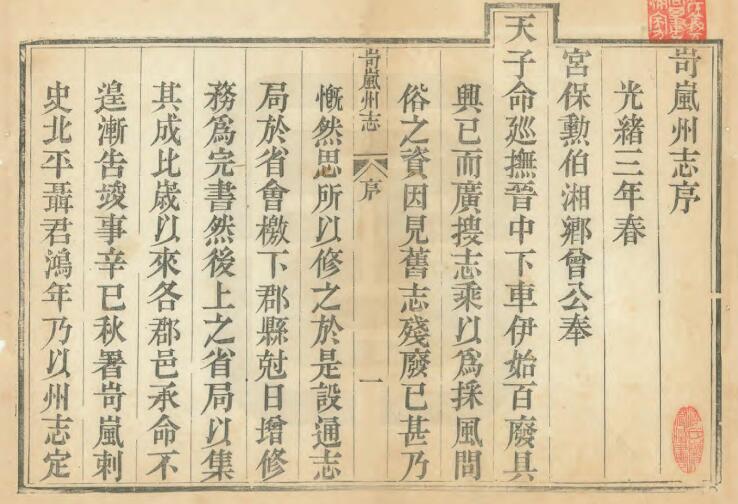 岢嵐州志序
光緒三年春
宮保勳伯湘鄉曾公奉
天子命廵撫晉中下車伊始百廢具
興已而廣搜志乘以爲採風問
俗之資因見舊志殘廢已甚乃
岢嵐州志
序
一
慨然思所以修之於是設通志
局於省會檄下郡縣尅日增修
務爲完書然後上之省局以集
其成比歲以來各郡邑承命不
遑漸告竣事辛巳秋署岢嵐刺
史北平聶君鴻年乃以州志定